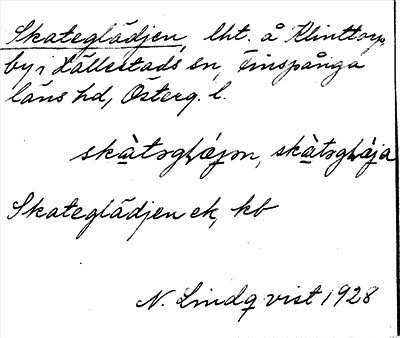 Skateglädjen, lht. å Klinttorps
by i Hällestads sn, Finspånga
läns hd, Österg. l.
skàtəgłæjən, skàtəgłäja
Skateglädjen ek, kb
N. Lindqvist 1928